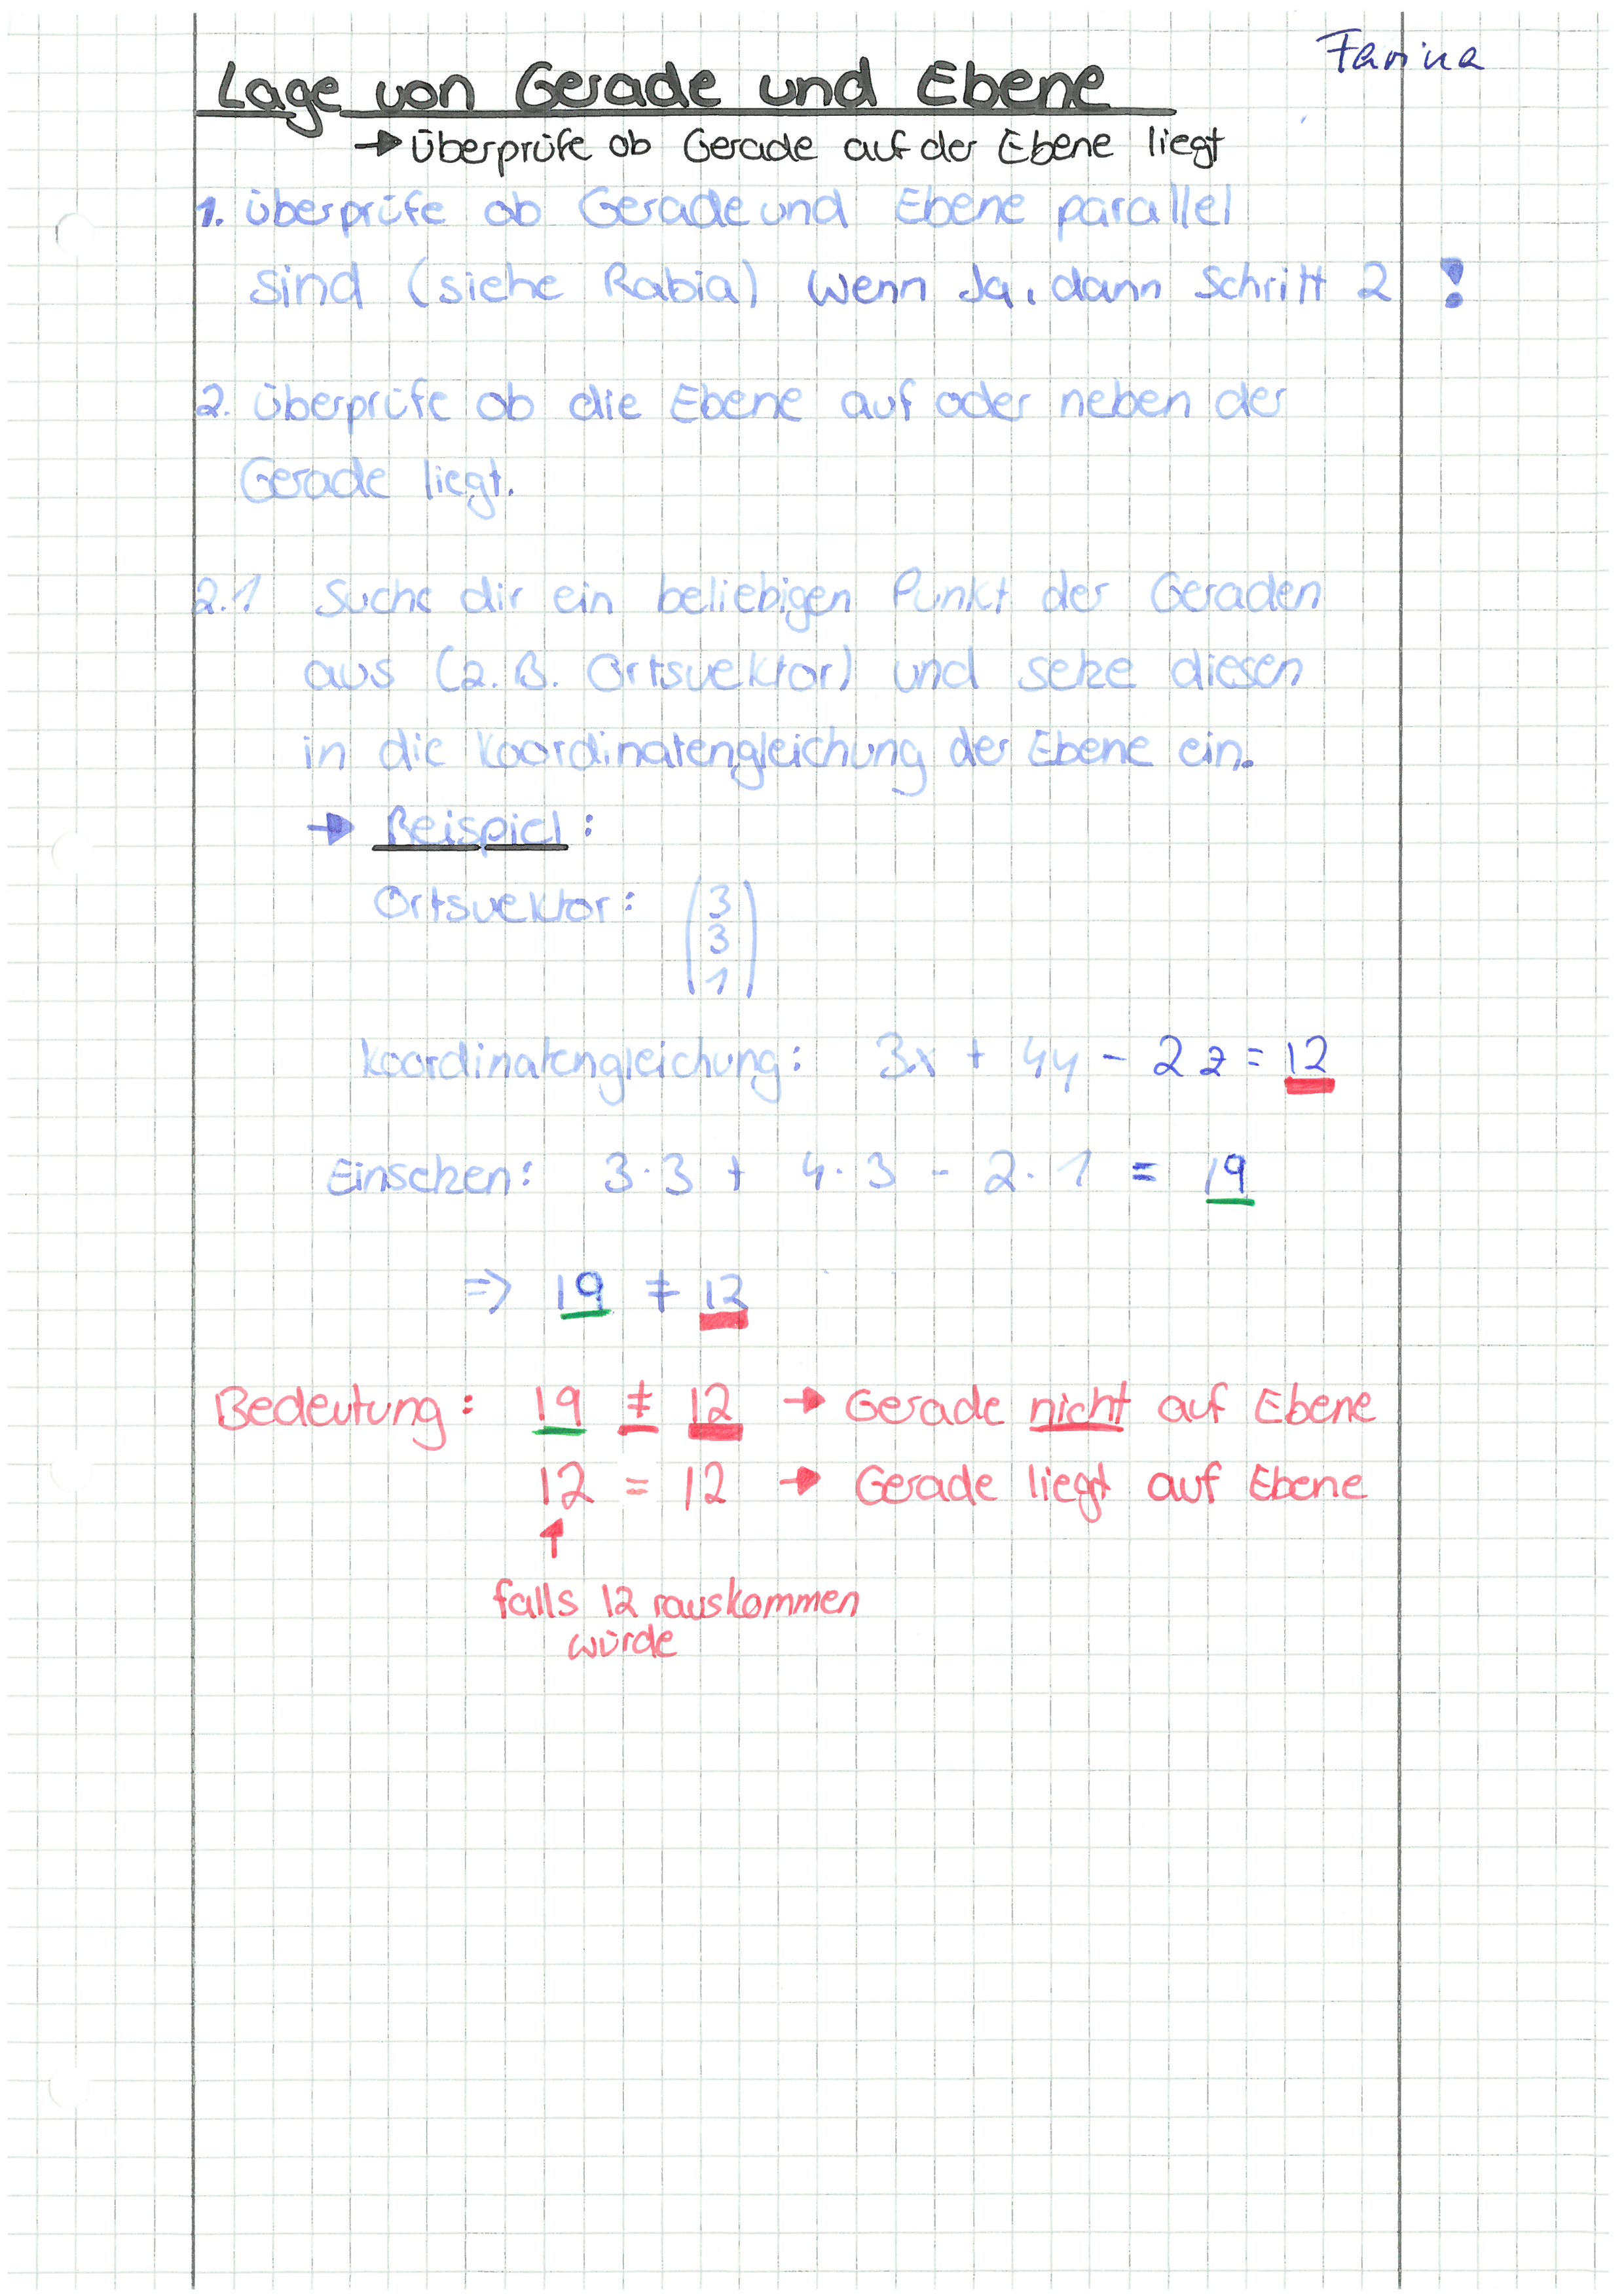 Farina
Lage von Gerade und Ebene
→ Überprüfe ob Gerade auf der Ebene liegt
1. Überprüfe ob Gerade und Ebene parallel
sind (siehe Rabia) Wenn Ja, dann Schritt 2 !
2. Überprüfe ob die Ebene auf oder neben der
Gerade liegt.
2.1 Suche dir ein beliebigen Punkt der Geraden
aus (z.B. Ortsvektor) und setze diesen
in die Koordinatengleichung der Ebene ein.
→ Beispiel:
Ortsvektor: (3
3
1)
Koordinatengleichung: 3x + 4y - 2z = 12
Einsetzen: 3·3 + 4·3 - 2·1 = 19
⇒ 19 ≠ 12
Bedeutung: 19 ≠ 12 → Gerade nicht auf Ebene
12 = 12 → Gerade liegt auf Ebene
↑
falls 12 rauskommen
würde